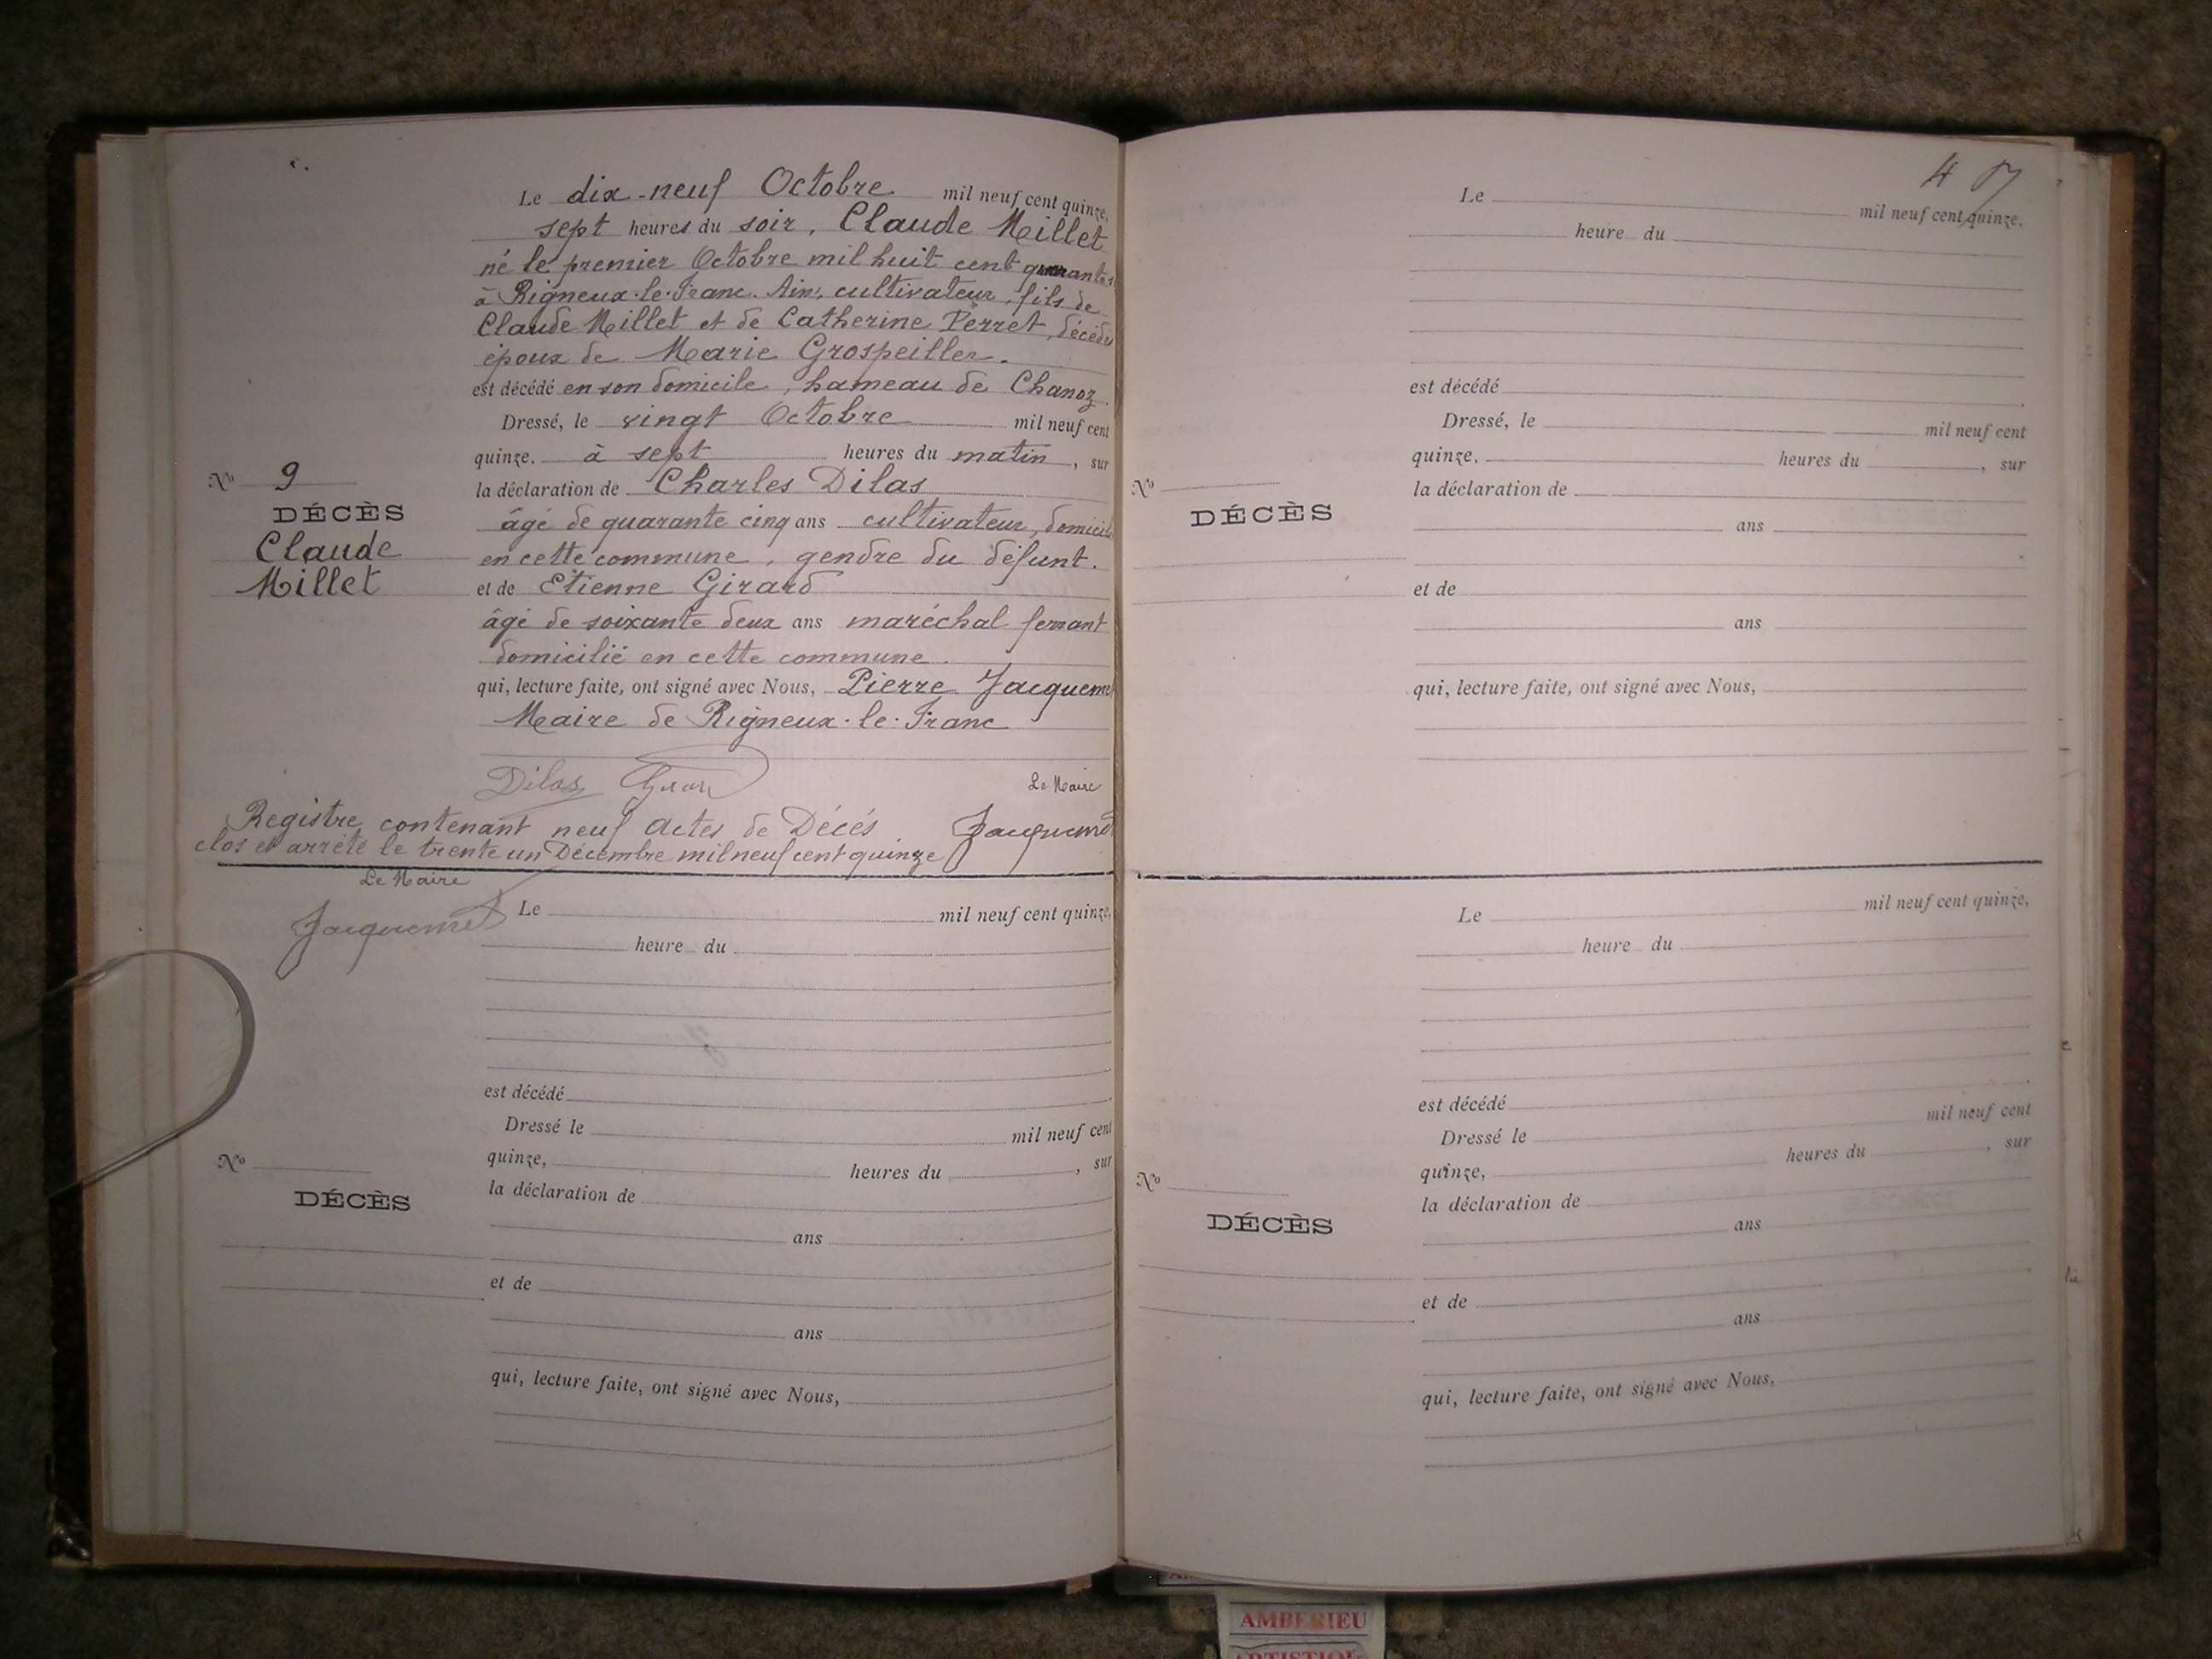 Le dix-neuf Octobre mil neuf cent quinze,
sept heures du soir, Claude Millet
né le premier Octobre mil huit cent
à Rigneux-le-Franc. Ain, cultivateur, fils de
Claude Millet et de Catherine Perret, décédés
époux de Marie Grospeiller.
est décédé en son domicile, hameau de Chanoz
Dressé, le vingt Octobre mil neuf cent
quinze, à sept heures du matin, sur
la déclaration de Charles Dilas
âgé de quarante cinq ans cultivateur, domicilié
en cette commune, gendre du défunt.
et de Etienne Girard
âgé de soixante deux ans maréchal ferrant
domicilié en cette commune.
qui, lecture faite, ont signé avec Nous, Pierre Jacquemet
Maire de Rigneux-le-Franc
No 9
DÉCÈS
Claude
Millet
Dilas Girard Le Maire
Registre contenant neuf actes de Décés. Jacquemet
clos et arrêté le trente un Décembre mil neuf cent quinze
Le Maire
Jacquemet
Le mil neuf cent quinze,
heure du
est décédé
Dressé le mil neuf cent
quinze, heures du , sur
la déclaration de
ans
et de
ans
qui, lecture faite, ont signé avec Nous,
No
DÉCÈS
Le mil neuf cent quinze,
heure du
est décédé
Dressé, le mil neuf cent
quinze, heures du , sur
la déclaration de
ans
et de
ans
qui, lecture faite, ont signé avec Nous,
No
DÉCÈS
Le mil neuf cent quinze,
heure du
est décédé
Dressé le mil neuf cent
quinze, heures du , sur
la déclaration de
ans
et de
ans
qui, lecture faite, ont signé avec Nous,
No
DÉCÈS
AMBERIEU